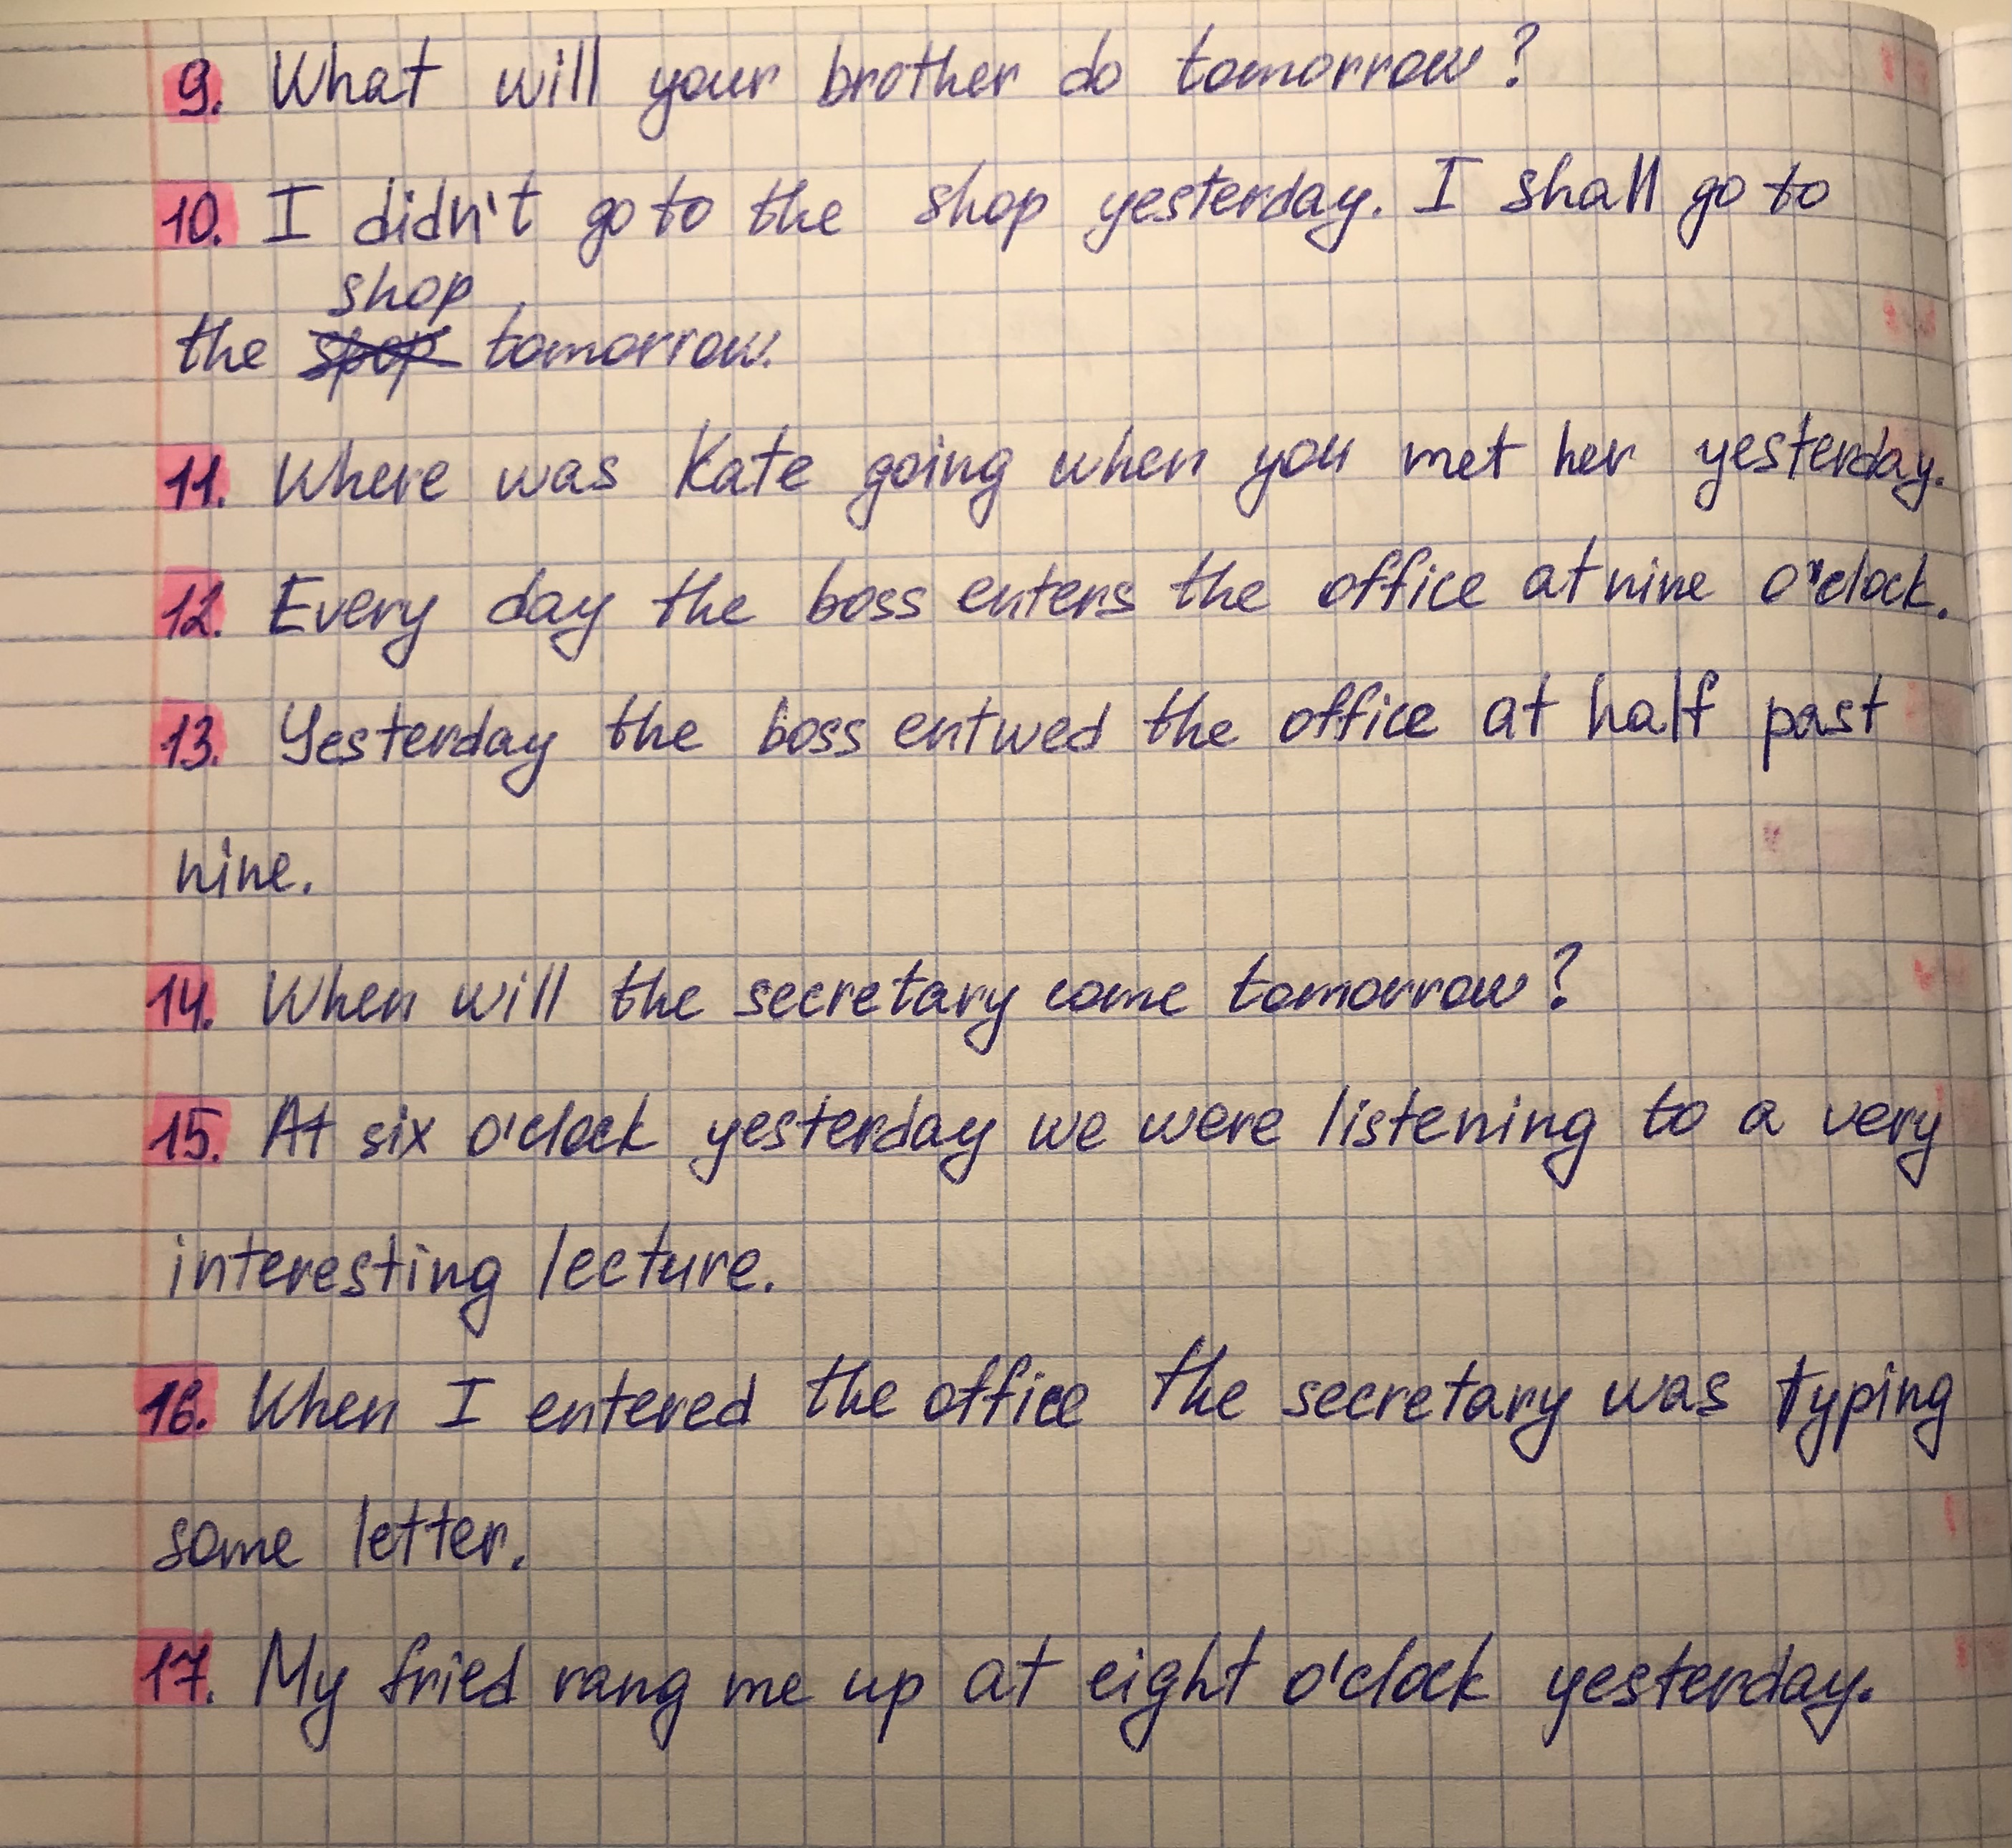 9. What will your brother do tomorrow?
10. I didn't go to the shop yesterday. I shall go to
shop
the spop tomorrow.
11. Where was Kate going when you met her yesterday.
12. Every day the boss enters the office at nine o'clock.
13. Yesterday the boss entwed the office at half past
nine.
14. When will the secretary come tomorrow?
15. At six o'clock yesterday we were listening to a very
interesting lecture.
16. When I entered the office the secretary was typing
some letter.
17. My fried rang me up at eight o'clock yesterday.